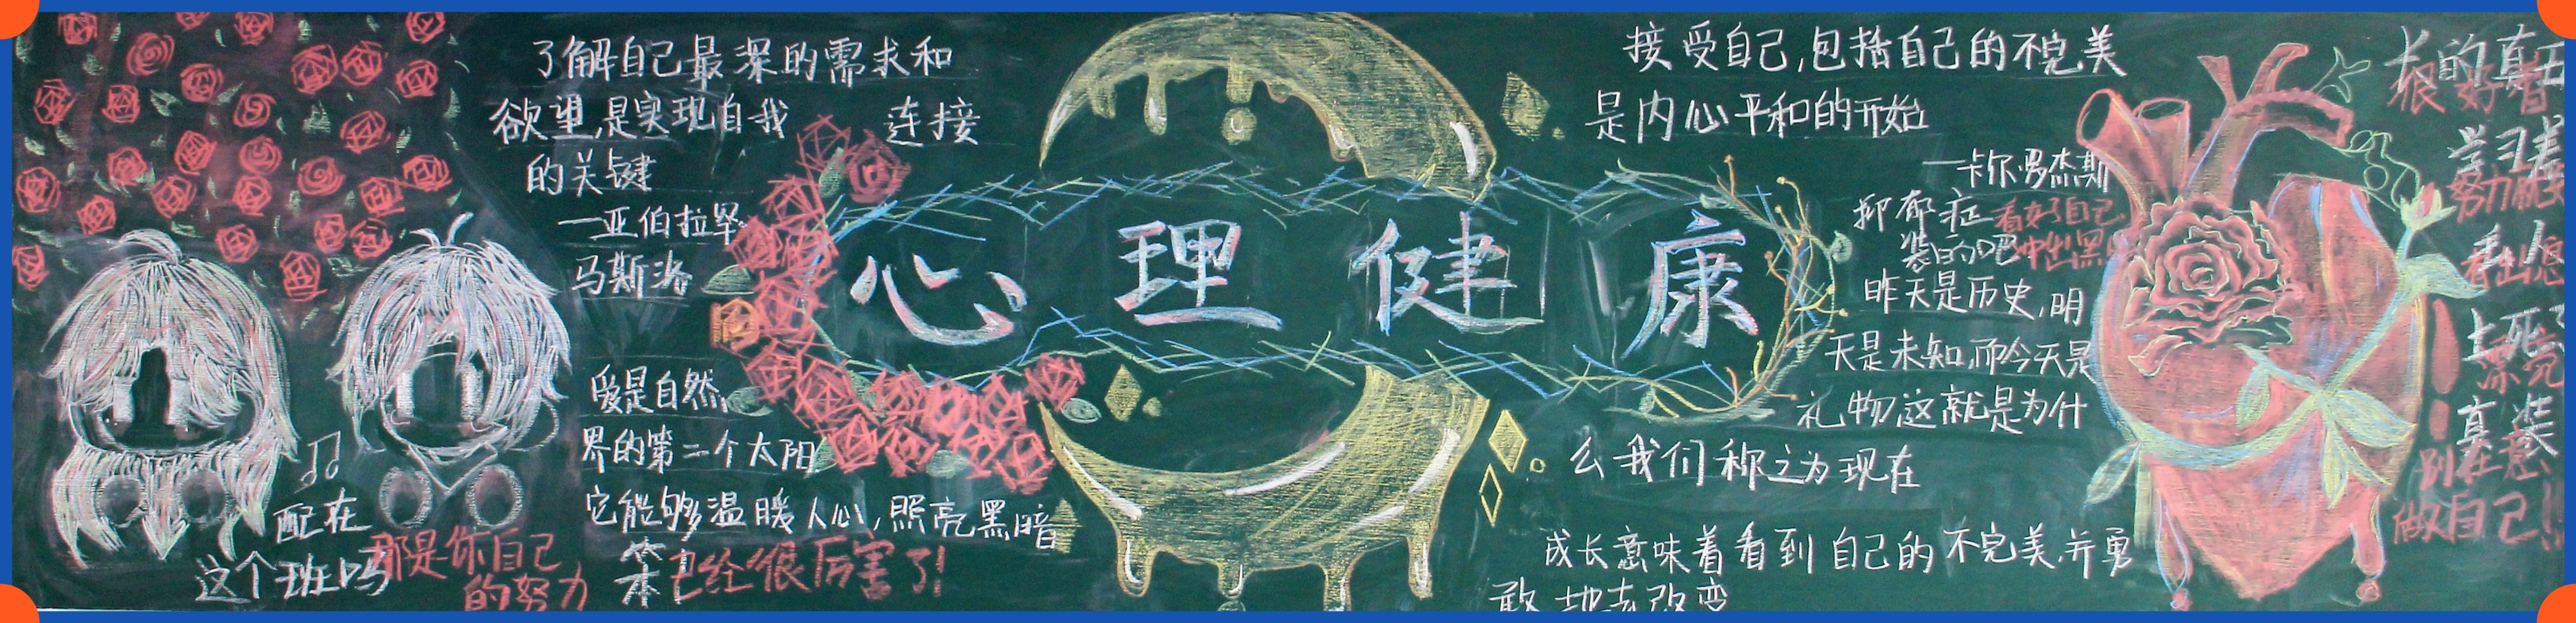 了解自己最深的需求和
欲望,是实现自我 连接
的关键
—亚伯拉罕
马斯洛
爱是自然
界的第二个太阳
它能够温暖人心,照亮黑暗
配在
这个班吗
那是你自己
的努力
笨
已经很厉害了!
心理健康
接受自己,包括自己的不完美
是内心平和的开始
—卡尔罗杰斯
抑郁症
装的吧
看好自己
冲出黑
昨天是历史,明
天是未知,而今天是
礼物这就是为什
么我们称之为现在
成长意味着看到自己的不完美,并勇
敢地去改变
学习差
努力
真装
别在意
做自己!!